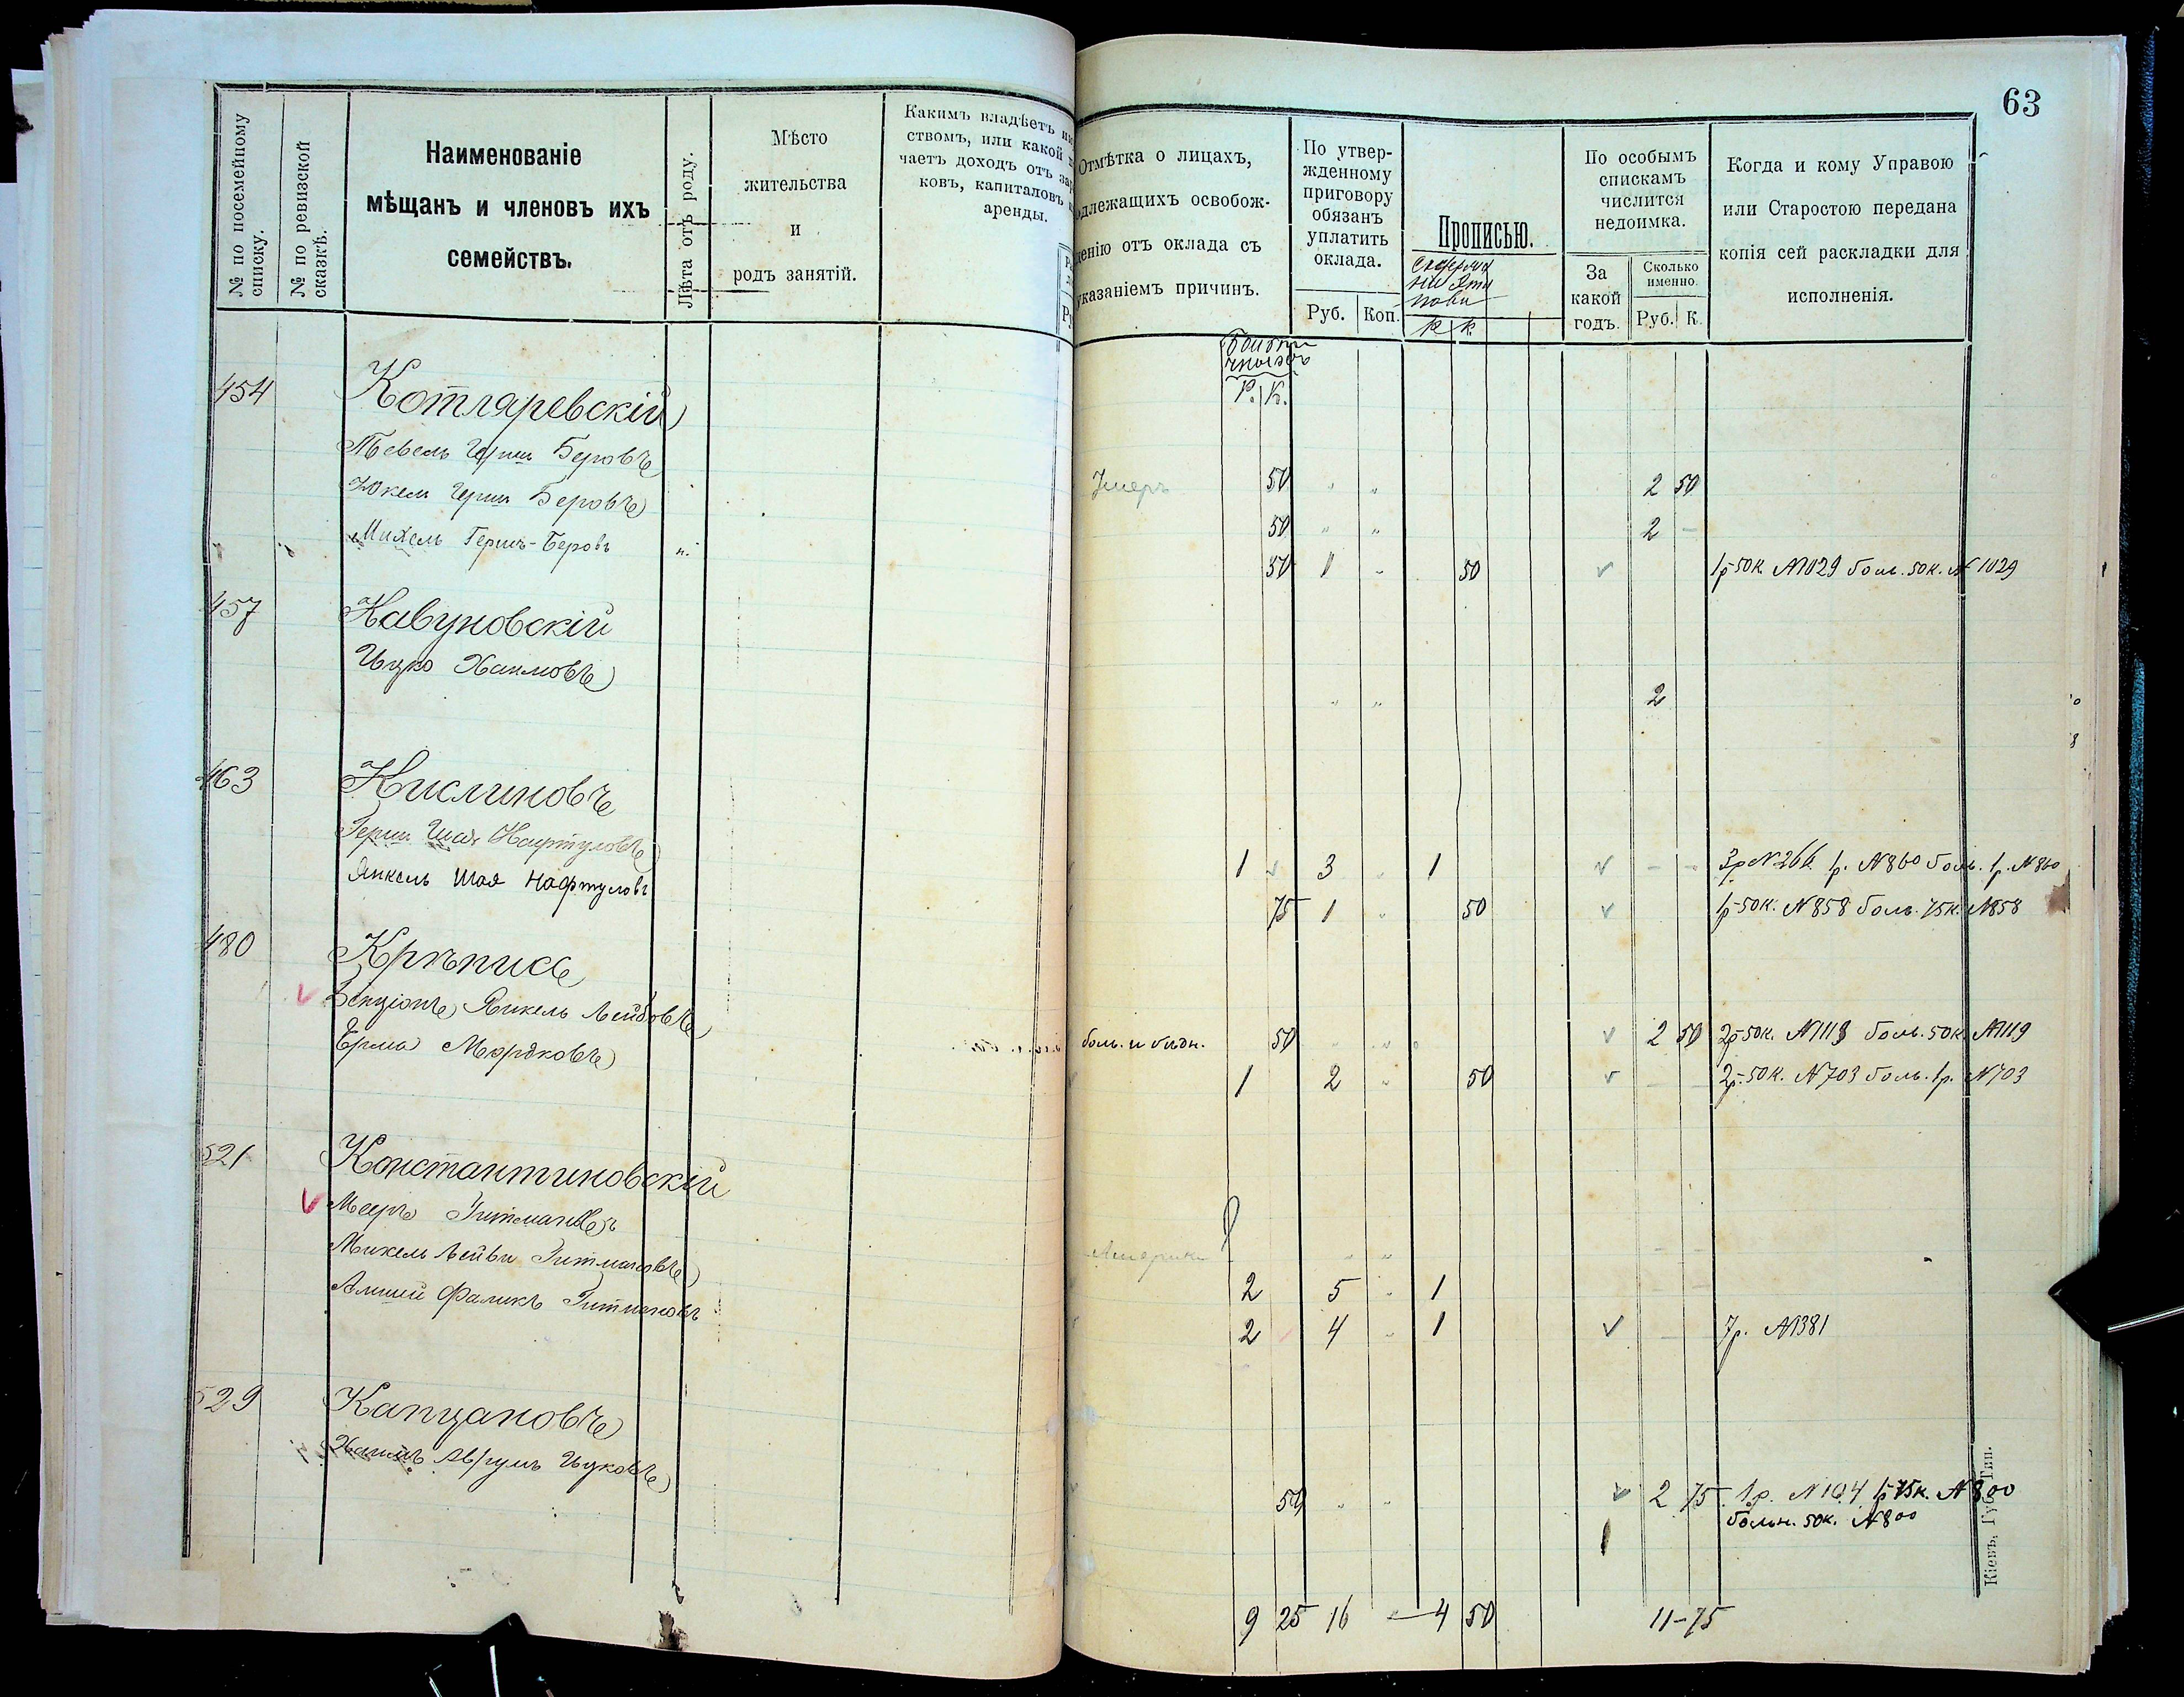 63
№ по посемейному списку.
№ по ревизской сказкѣ.
Наименованіе
мѣщанъ и членовъ ихъ
семействъ.
Лѣта отъ роду.
Мѣсто
жительства
и
родъ занятій.
Какимъ владѣетъ
ствомъ, или какой
чаетъ доходъ отъ
ковъ, капиталовъ
аренды.
Отмѣтка о лицахъ,
длежащихъ освобож-
енію отъ оклада съ
указаніемъ причинъ.
По утвер-
жденному
приговору
обязанъ
уплатить
оклада.
Руб. Коп.
Прописью.
Р. К.
По особымъ
спискамъ
числится
недоимка.
За
какой
годъ.
Сколько
именно.
Руб. К.
Когда и кому Управою
или Старостою передана
копія сей раскладки для
исполненія.
Р. К.
454 Котляревскій
Тевель Герш Беровъ
Умеръ 50 " " 2 50
Юкель Герш Беровъ
50 " " 2 -
Михель Гершъ-Беровъ
50 1 " 50 v 1р 50к. №1029 бол. 50к. № 1029
457 Кавуновскій
Ицко Хаимовъ
" " 2
463 Кислиновъ
Герш Шая Нафтуловъ
1 v 3 " 1 v - - 3р №266 1р. №860 бол. 1р. №860
Янкель Шая Нафтуловъ
75 1 " 50 v 1р 50к. №858 боль. 75к. №858
480 Крѣпись
v Бенціонъ Янкель Лейбовъ
боль. и бѣдн. 50 " " v 2 50 2р 50к. №1119 боль. 50к. №1119
Ерма Мордковъ
1 2 " 50 v 2р. 50к. №703 боль. 1р. №703
521 Константиновскій
v Мееръ Гитмановъ
Америки " "
Михель Лейви Гитмановъ
2 5 " 1
Фаликъ Гитмановъ
2 4 " 1 v 7р. №1381
529 Капцановъ
Хаимъ Аврумъ Ицковъ
50 " " v 2 75 1р. №104 1р 75к. №800
больн. 50к. №800
9 25 16 " 4 50 11-75
Кіевъ, Губ. Тип.